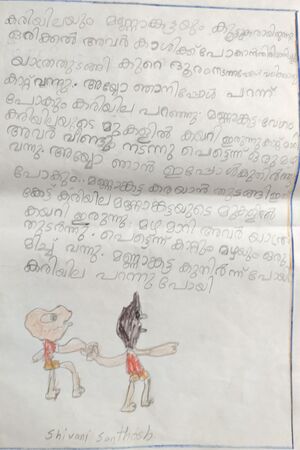 കരിയിലയും മണ്ണാങ്കട്ടയും കൂട്ടുകാരായിരുന്നു
ഒരിക്കൽ അവർ കാശിക്ക് പോകാൻ തീരുമാനിച്ചു
യാത്രതുടങ്ങി കുറെ ദൂരം
കാറ്റ് വന്നു. അയ്യോ ഞാനിപ്പോൾ പറന്ന്
പോകും കരിയില പറഞ്ഞു. മണ്ണാങ്കട്ട വേഗം
കരിയിലയുടെ മുകളിൽ കയറി ഇരുന്നു
അവർ വീണ്ടും നടന്നു പെട്ടെന്ന് ഒരു മഴ
വന്നു അയ്യോ ഞാൻ ഇപ്പോൾ കുതിർന്നു
പോകും. മണ്ണാങ്കട്ട കരയാൻ തുടങ്ങി ഇത്
കേട്ട് കരിയില മണ്ണാങ്കട്ടയുടെ മുകളിൽ
കയറി ഇരുന്നു. മഴ മാറി അവർ യാത്ര
തുടർന്നു. പെട്ടെന്ന് കാറ്റും മഴയും ഒരു
മിച്ച് വന്നു. മണ്ണാങ്കട്ട കുതിർന്ന് പോയി
കരിയില പറന്നു പോയി
Shivani Santhosh